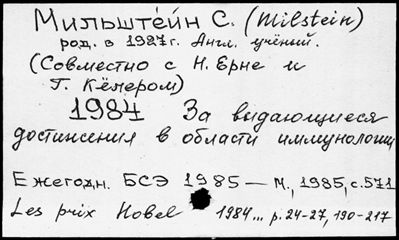 Мильште́йн С. (Milstein)
род. в 1927г. Англ. учёный.
(Совместно с Н. Ерне и
Г. Кёлером)
1984 За выдающиеся
достижения в области иммунологии
Ежегодн. БСЭ 1985 — М., 1985, с.571
Les prix Nobel 1984... p. 24-27, 190-217